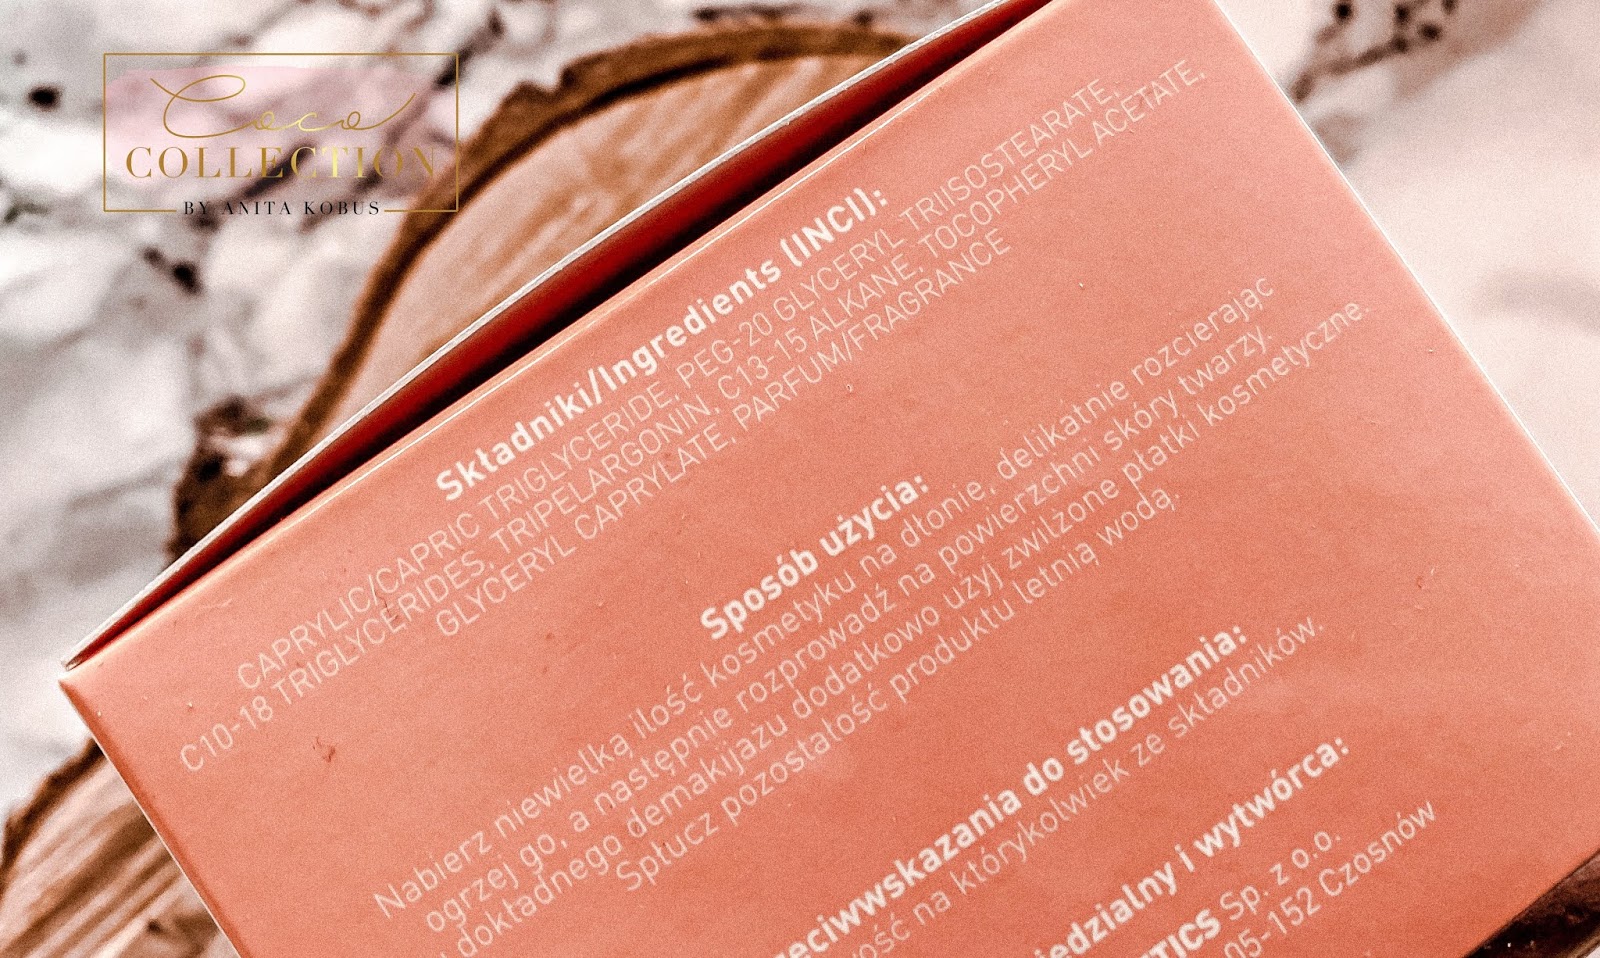 Coco
COLLECTION
BY ANITA KOBUS
Składniki/Ingredients (INCI):
CAPRYLIC/CAPRIC TRIGLYCERIDE, PEG-20 GLYCERYL TRIISOSTEARATE,
C10-18 TRIGLYCERIDES, TRIPELARGONIN, C13-15 ALKANE, TOCOPHERYL ACETATE,
GLYCERYL CAPRYLATE, PARFUM/FRAGRANCE
Sposób użycia:
Nabierz niewielką ilość kosmetyku na dłonie, delikatnie rozcierając
ogrzej go, a następnie rozprowadź na powierzchni skóry twarzy.
dokładnego demakijażu dodatkowo użyj zwilżone płatki kosmetyczne.
Spłucz pozostałość produktu letnią wodą.
zeciwwskazania do stosowania:
wość na którykolwiek ze składników.
iedzialny i wytwórca:
ETICS Sp. z o.o.
05-152 Czosnów